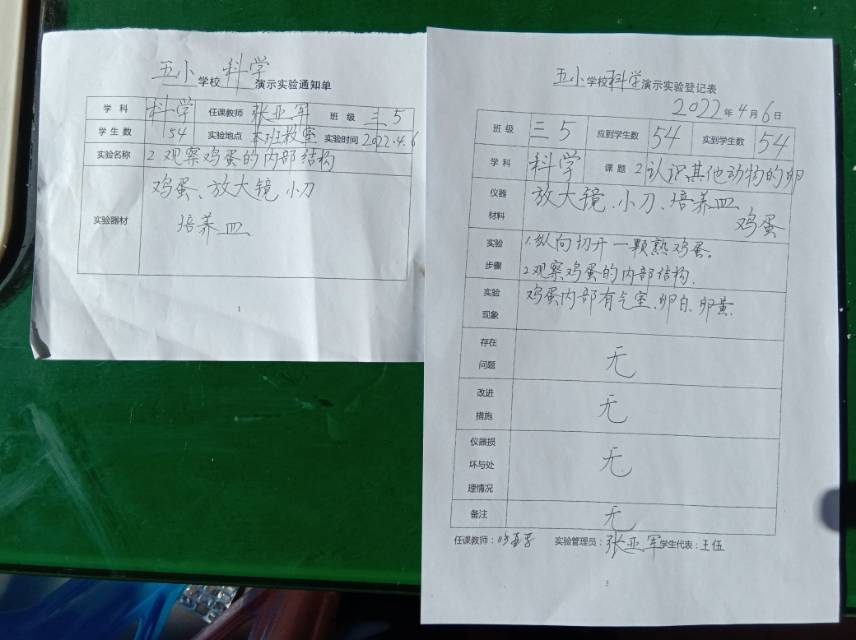 五小学校科学演示实验通知单
学科 科学 任课教师 张亚军 班级 三5
学生数 54 实验地点 本班教室 实验时间 2022.4.6
实验名称 2 观察鸡蛋的内部结构
实验器材 鸡蛋、放大镜 小刀
培养皿
1
五小学校科学演示实验登记表
2022年4月6日
班级 三5 应到学生数 54 实到学生数 54
学科 科学 课题 2 认识其他动物的卵
仪器材料 放大镜、小刀、培养皿
鸡蛋
实验步骤 1.纵向切开一颗熟鸡蛋。
2.观察鸡蛋的内部结构.
实验现象 鸡蛋内部有气室、卵白、卵黄
存在问题 无
改进措施 无
仪器损坏与处理情况 无
备注 无
任课教师: 实验管理员:张亚军 学生代表:王伍